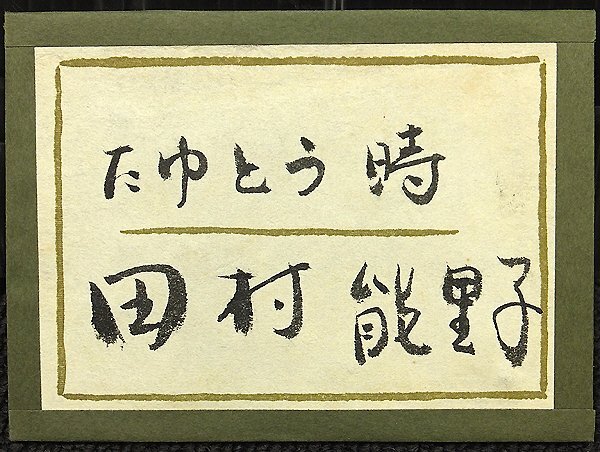 たゆとう 時
田村 能里子